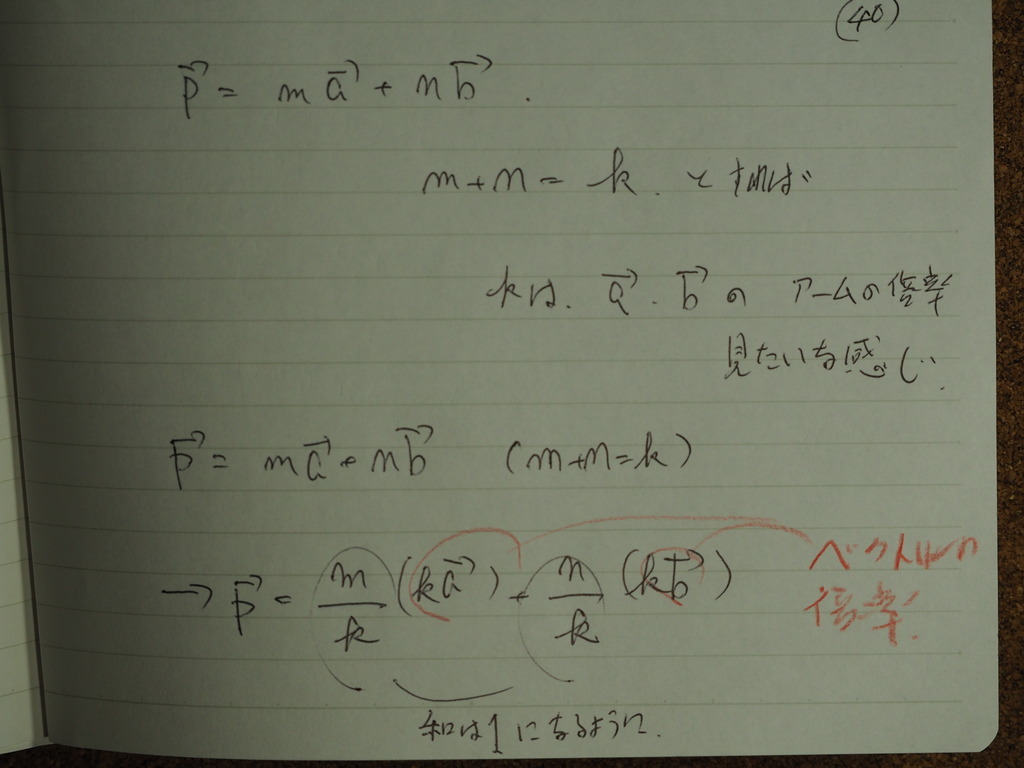 (40)
p⃗ = m a⃗ + n b⃗ .
m+n = k. とすれば
kは. a⃗ . b⃗ の アームの倍率
見たいな感じ.
p⃗ = m a⃗ + n b⃗ (m+n=k)
→ p⃗ = m/k (k a⃗) + n/k (k b⃗)
ベクトルの
倍率.
和は1になるように.